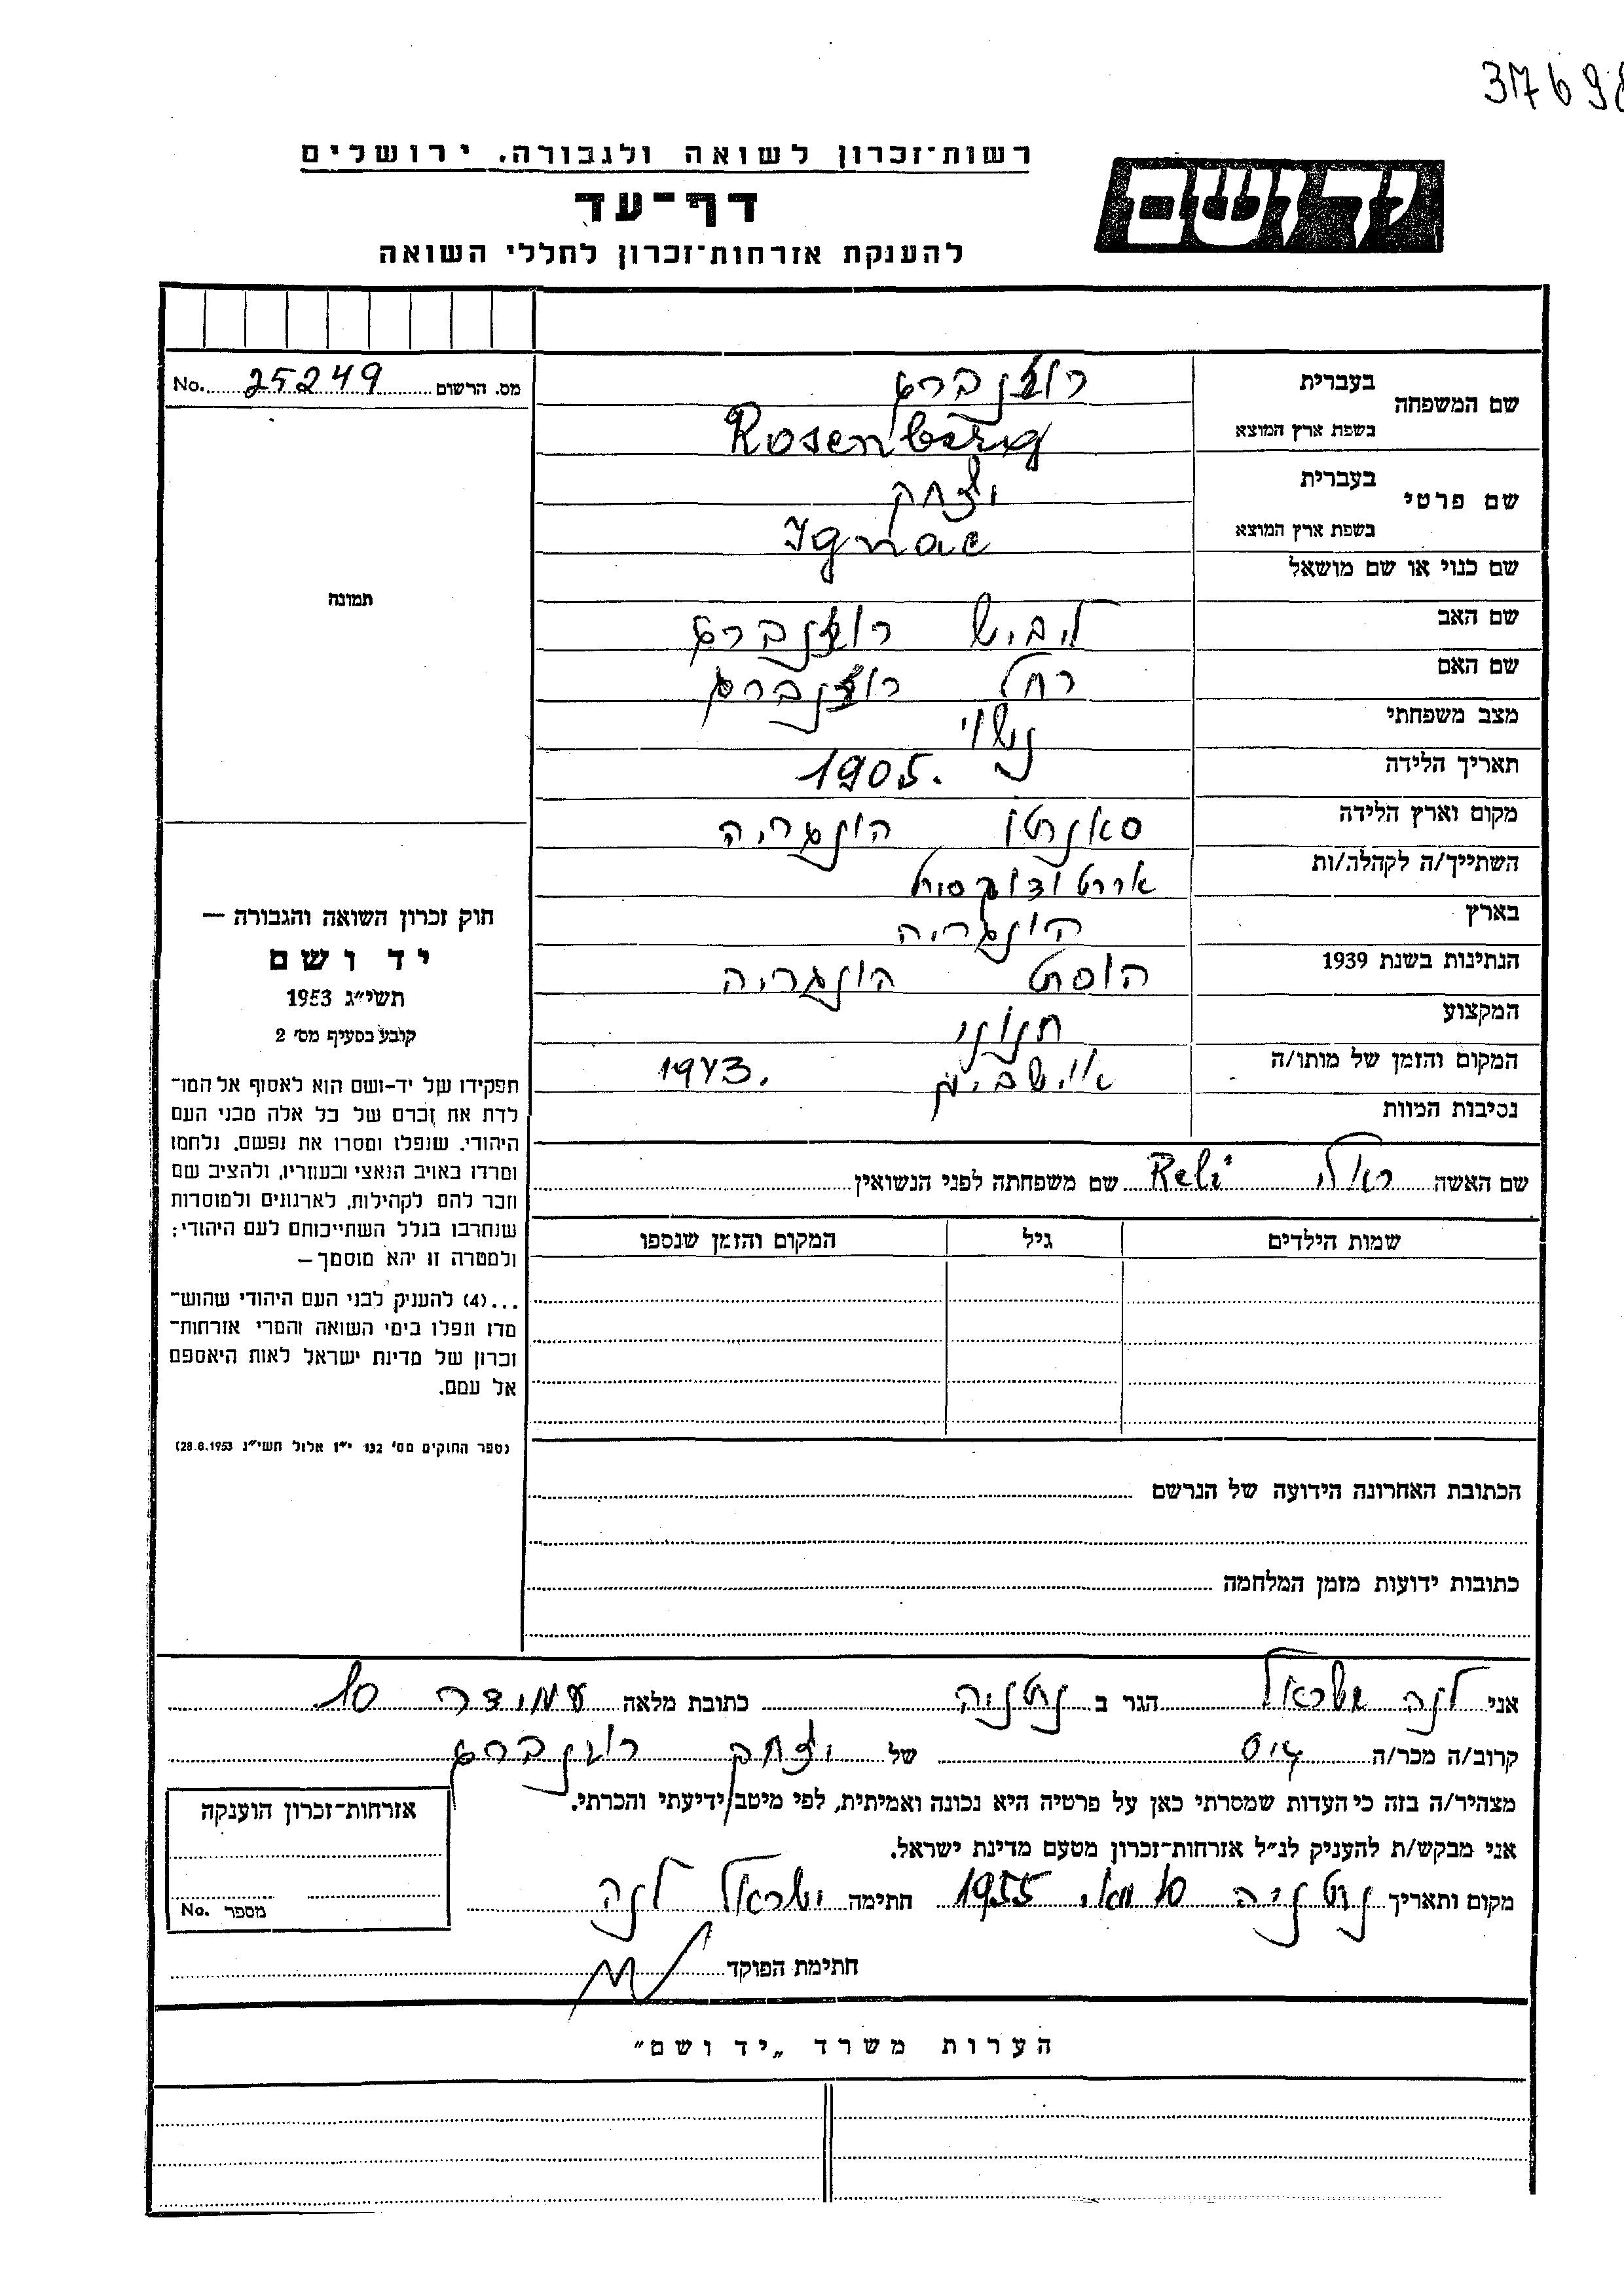 3769
רשות־זכרון לשואה ולגבורה, ירושלים
יד ושם
דף־עד
להענקת אזרחות־זכרון לחללי השואה
מס. הרשום 25249 No.
שם המשפחה בעברית רוזנברג
בשפת ארץ המוצא Rosenberg
שם פרטי בעברית יצחק
בשפת ארץ המוצא Ignac
שם כנוי או שם מושאל
שם האב ליביש רוזנברג
שם האם רחל רוזנברג
מצב משפחתי נשוי
תאריך הלידה 1905.
מקום וארץ הלידה סאנטו הונגריה
השתייך/ה לקהלה/ות
בארץ הונגריה
הנתינות בשנת 1939 הוסט הונגריה
המקצוע חנוני
המקום והזמן של מותו/ה 1943.
נסיבות המוות
תמונה
חוק זכרון השואה והגבורה —
יד ושם
תשי״ג 1953
קובע בסעיף מס׳ 2
תפקידו של יד-ושם הוא לאסוף אל המו־
לדת את זכרם של כל אלה מבני העם
היהודי, שנפלו ומסרו את נפשם, נלחמו
ומרדו באויב הנאצי ובעוזריו, ולהציב שם
וזכר להם לקהילות, לארגונים ולמוסדות
שנחרבו בגלל השתייכותם לעם היהודי;
ולמטרה זו יהא מוסמך —
...(4) להעניק לבני העם היהודי שהוש־
מדו ונפלו בימי השואה והמרי אזרחות־
זכרון של מדינת ישראל לאות היאספם
אל עמם.
(ספר החוקים מס׳ 132 י״ז אלול תשי״ג 28.8.1953)
שם האשה ראלי Reli שם משפחתה לפני הנשואין
שמות הילדים גיל המקום והזמן שנספו
הכתובת האחרונה הידועה של הנרשם
כתובות ידועות מזמן המלחמה
אני לנה ישראל הגר ב נתניה כתובת מלאה עמידר 10
קרוב/ה מכר/ה גיס של יצחק רוזנברג
מצהיר/ה בזה כי העדות שמסרתי כאן על פרטיה היא נכונה ואמיתית, לפי מיטב ידיעתי והכרתי.
אני מבקש/ת להעניק לנ״ל אזרחות־זכרון מטעם מדינת ישראל.
מקום ותאריך נתניה 10 מאי 1955 חתימה ישראל לנה
אזרחות־זכרון הוענקה
מספר No.
חתימת הפוקד
הערות משרד „יד ושם״